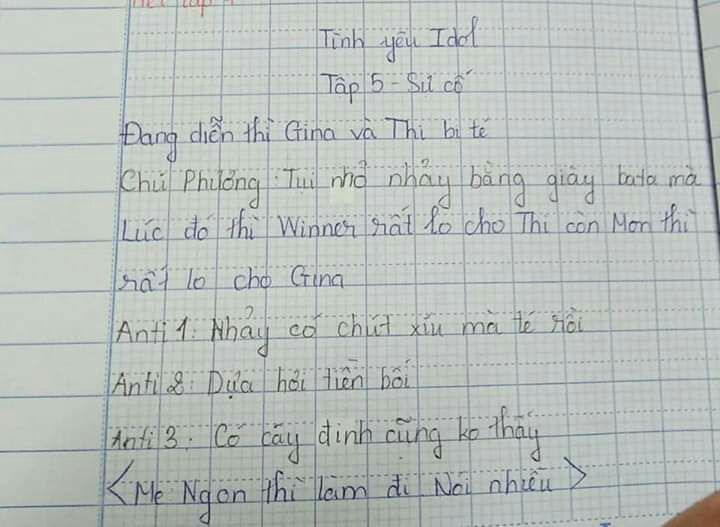 Tình yêu Idol
Tập 5 - Sự cố
Đang diễn thì Gina và Thi bị té
Chú Phương: Tui nhớ nhảy bằng giày bata mà
Lúc đó thì Winner rất lo cho Thi còn Mon thì
rất lo cho Gina
Anti 1: Nhảy có chút xíu mà té rồi
Anti 2: Dựa hơi tiền bối
Anti 3: Có cây đinh cũng ko thấy
<Mẹ Ngon thì làm đi Nói nhiều>